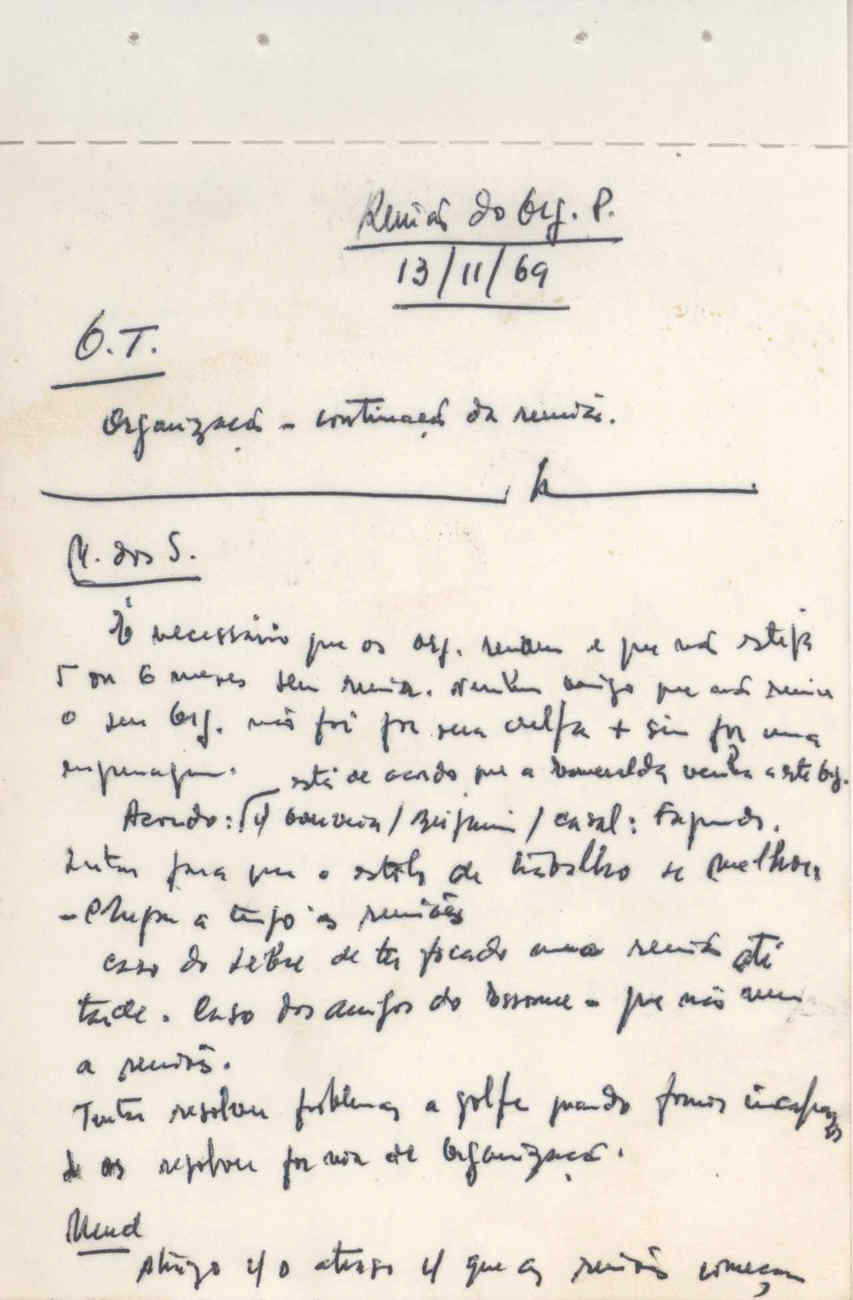 Reunião do Org. P.
13/11/69
O.T.
Organização - continuação da reunião.
M. dos S.
É necessário que os org. reunam e que não esteja
5 ou 6 meses sem reunir. Nenhum amigo que não reuniu
o seu Org. não foi por sua culpa + sim por uma
engrenagem. está de acordo que a Esmeralda venha a este Org.
Acordo: c/ Gouveia / Benjamin / casal: Fagundo.
Lutar para que o estilo de trabalho se melhore
- Chegar a tempo às reuniões
caso do de ter ficado uma reunião até
tarde. Caso dos amigos do - que não vem
a reunião.
Tentar resolver problemas a golpe quando formos incapazes
de os resolver por via de Organização.
Mend
c/ o atraso c/ que as reuniões começam